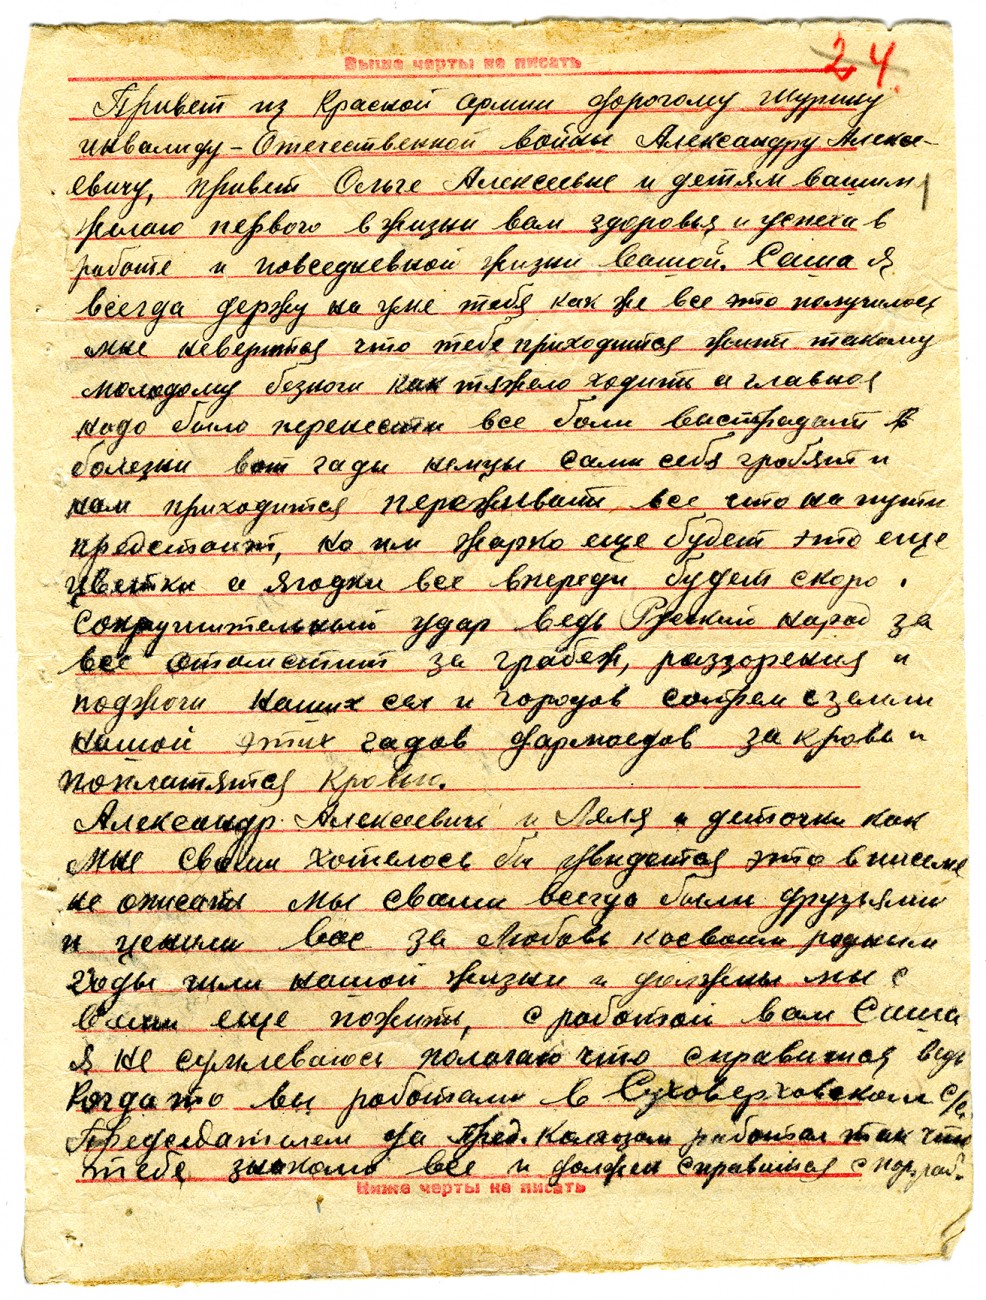 Выше черты не писать
24.
Привет из Красной армии дорогому Шурину
инвалиду-Отечественной войны Александру Алексе-
евичу, привет Ольге Алексеевне и детям вашим
1
желаю первого в жизни вам здоровья и успеха в
работе и повседневной жизни Вашой. Саша я
всегда держу на уме тебя как же все это получилось
мне неверится что тебе приходится жить такому
молодому безноги как тяжело ходить а главная
надо было перенести все боли выстрадать в
болезни вот гады немцы сами себя гробят и
нам приходится переживать все что на пути
предстоит, но им жарко еще будет это еще
цветки а ягодки все впереди будет скоро.
Сокрушительный удар ведь Руский народ за
все отомстит за грабеж, раззорения и
поджоги наших сел и городов сотрем с земли
нашой этих гадов дармоедов за кровь и
поплатятся кровью.
Александр Алексеевич и Леля и деточки как
мне свами хотелось бы увидется это в письме
не описать мы свами всегда были друзьями
и ценили вас за любовь косвоим родным
Годы чили нашой жизни и должны мы с
Вами еще пожить, с работой вам Саша
я не сумлеваюсь пологаю что справишся ведь
Когда то вы работали в Суховерховском с/с.
Председателем да пред. Колхозом работал так что
тебе знакомо все и должен справится с пор. раб.
Ниже черты не писать